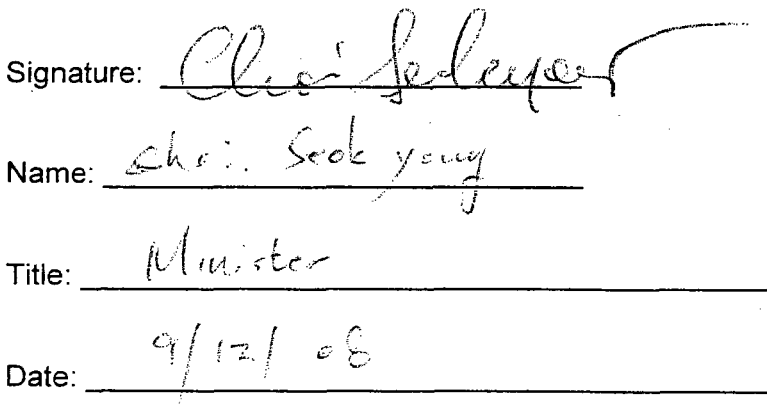 Signature: Choi Seokyoung
Name: Choi. Seok young
Title: Minister
Date: 9/12/08